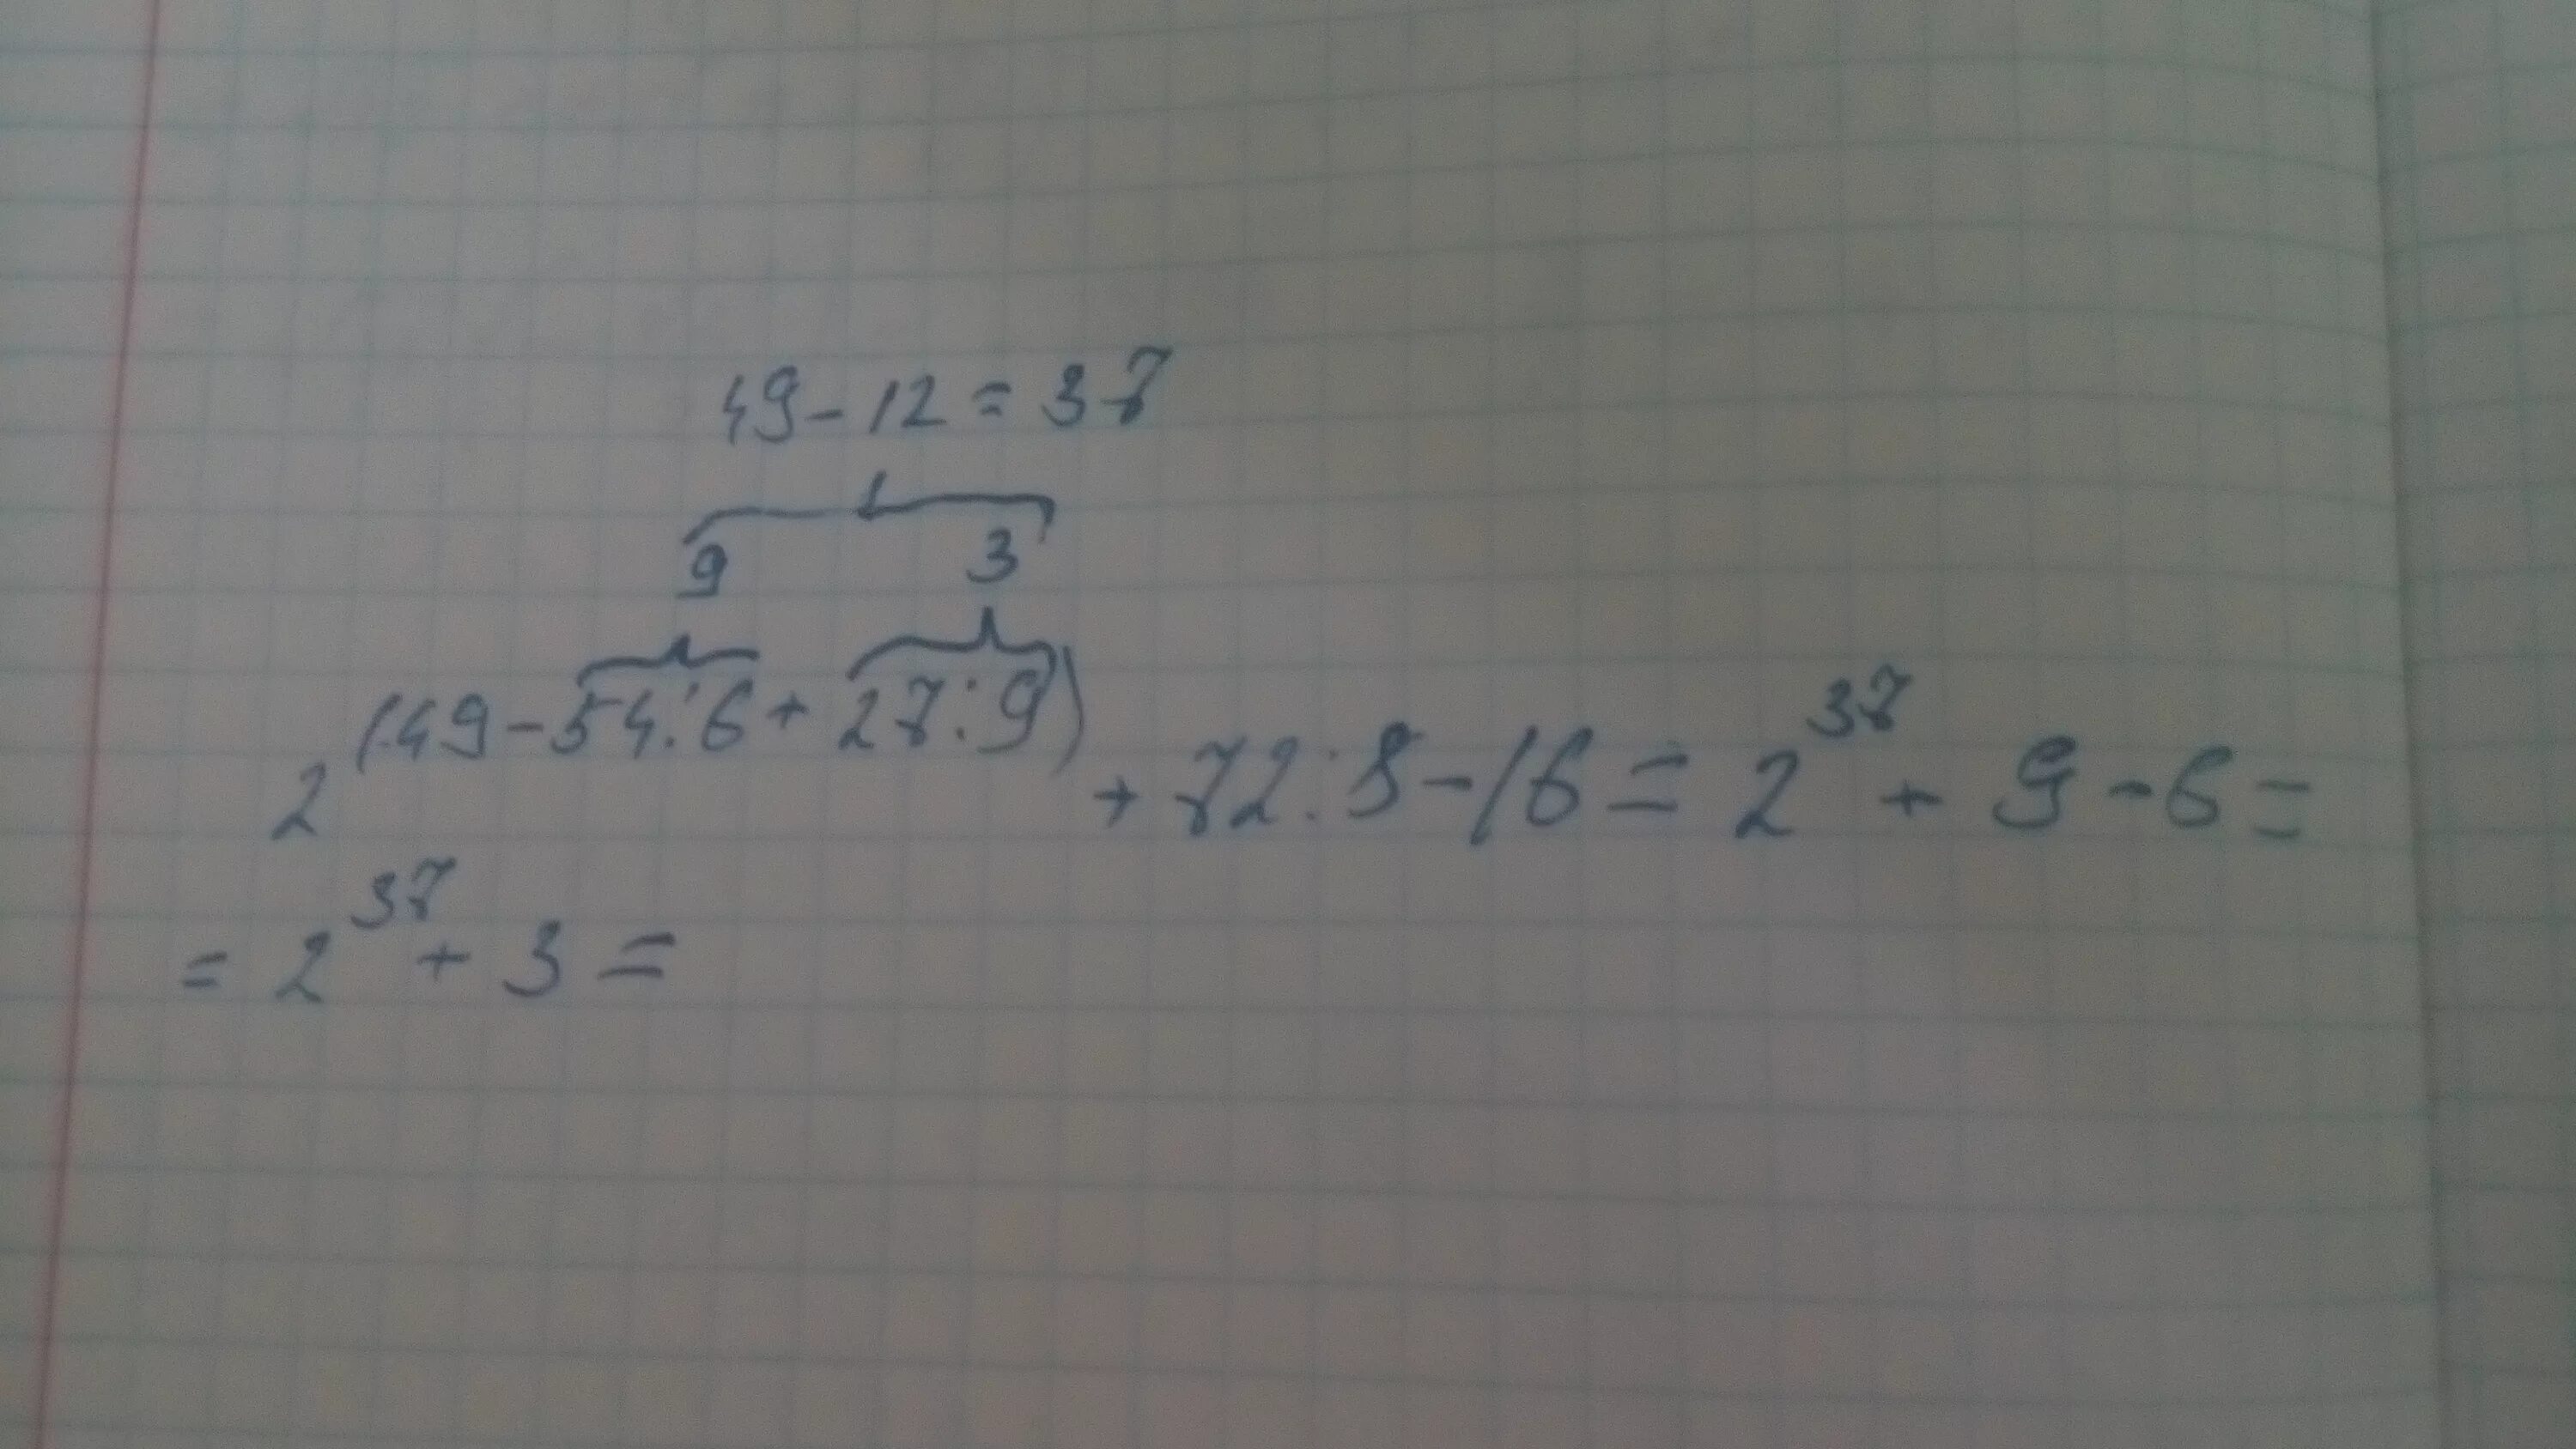 49 - 12 = 37
9 3
2^(49 - 54 : 6 + 27 : 9) + 72 : 8 - 16 = 2^37 + 9 - 6 =
= 2^37 + 3 =